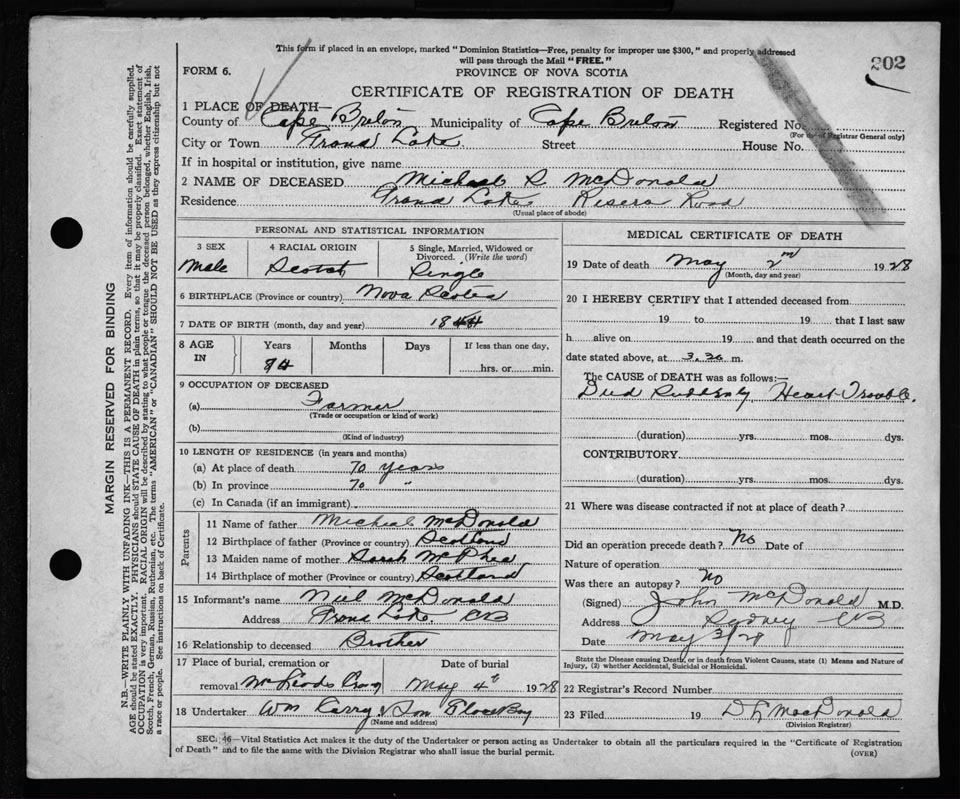 This form if placed in an envelope, marked "Dominion Statistics—Free, penalty for improper use $300," and properly addressed
will pass through the Mail "FREE."
202
FORM 6.
PROVINCE OF NOVA SCOTIA
CERTIFICATE OF REGISTRATION OF DEATH
1 PLACE OF DEATH—
County of Cape Breton Municipality of Cape Breton Registered No.
(For use of Registrar General only)
City or Town Grand Lake Street House No.
If in hospital or institution, give name
2 NAME OF DECEASED Michael McDonald
Residence Grand Lake Road
(Usual place of abode)
PERSONAL AND STATISTICAL INFORMATION
3 SEX
Male
4 RACIAL ORIGIN
Scotch
5 Single, Married, Widowed or
Divorced. (Write the word)
Single
6 BIRTHPLACE (Province or country) Nova Scotia
7 DATE OF BIRTH (month, day and year) 1844
8 AGE
IN
Years
84
Months
Days
If less than one day,
hrs. or min.
9 OCCUPATION OF DECEASED
(a) Farmer
(Trade or occupation or kind of work)
(b)
(Kind of industry)
10 LENGTH OF RESIDENCE (in years and months)
(a) At place of death 70 years
(b) In province 70 "
(c) In Canada (if an immigrant)
Parents
11 Name of father Micheal McDonald
12 Birthplace of father (Province or country) Scotland
13 Maiden name of mother Sarah McPhee
14 Birthplace of mother (Province or country) Scotland
15 Informant's name Neil McDonald
Address Grand Lake. CB
16 Relationship to deceased Brother
17 Place of burial, cremation or
removal McLeods
Date of burial
May 4th 1928
18 Undertaker Wm Curry & Son Glace Bay
(Name and address)
MEDICAL CERTIFICATE OF DEATH
19 Date of death May 2nd 1928
(Month, day and year)
20 I HEREBY CERTIFY that I attended deceased from
19 to 19 that I last saw
h alive on 19 and that death occurred on the
date stated above, at 3.30 m.
The CAUSE of DEATH was as follows:—
Died Suddenly Heart Trouble.
(duration) yrs. mos. dys.
CONTRIBUTORY
(duration) yrs. mos. dys.
21 Where was disease contracted if not at place of death?
Did an operation precede death? No Date of
Nature of operation
Was there an autopsy? no
(Signed) John McDonald M.D.
Address Sydney CB
Date May 3/28
State the Disease causing Death, or in death from Violent Causes, state (1) Means and Nature of
Injury, (2) whether Accidental, Suicidal or Homicidal.
22 Registrar's Record Number
23 Filed 19 D MacDonald
(Division Registrar)
SEC. 46—Vital Statistics Act makes it the duty of the Undertaker or person acting as Undertaker to obtain all the particulars required in the "Certificate of Registration
of Death" and to file the same with the Division Registrar who shall issue the burial permit.
(OVER)
MARGIN RESERVED FOR BINDING
N.B.—WRITE PLAINLY WITH UNFADING INK—THIS IS A PERMANENT RECORD. Every item of information should be carefully supplied.
AGE should be stated EXACTLY. PHYSICIANS should STATE CAUSE OF DEATH in plain terms, so that it may be properly classified. Exact statement of
OCCUPATION is very important. RACIAL ORIGIN will be described by stating to what people or tongue the deceased person belonged, whether English, Irish,
Scotch, French, German, Russian, Ruthenian, etc. The terms "AMERICAN" or "CANADIAN" SHOULD NOT BE USED as they express citizenship but not
a race or people. See instructions on back of Certificate.